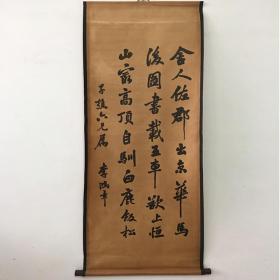 舍人佐郡出京華馬
後圖書載五車歌上恒
山最高頂自馴白鹿飯松
子超六兄屬
李鴻章